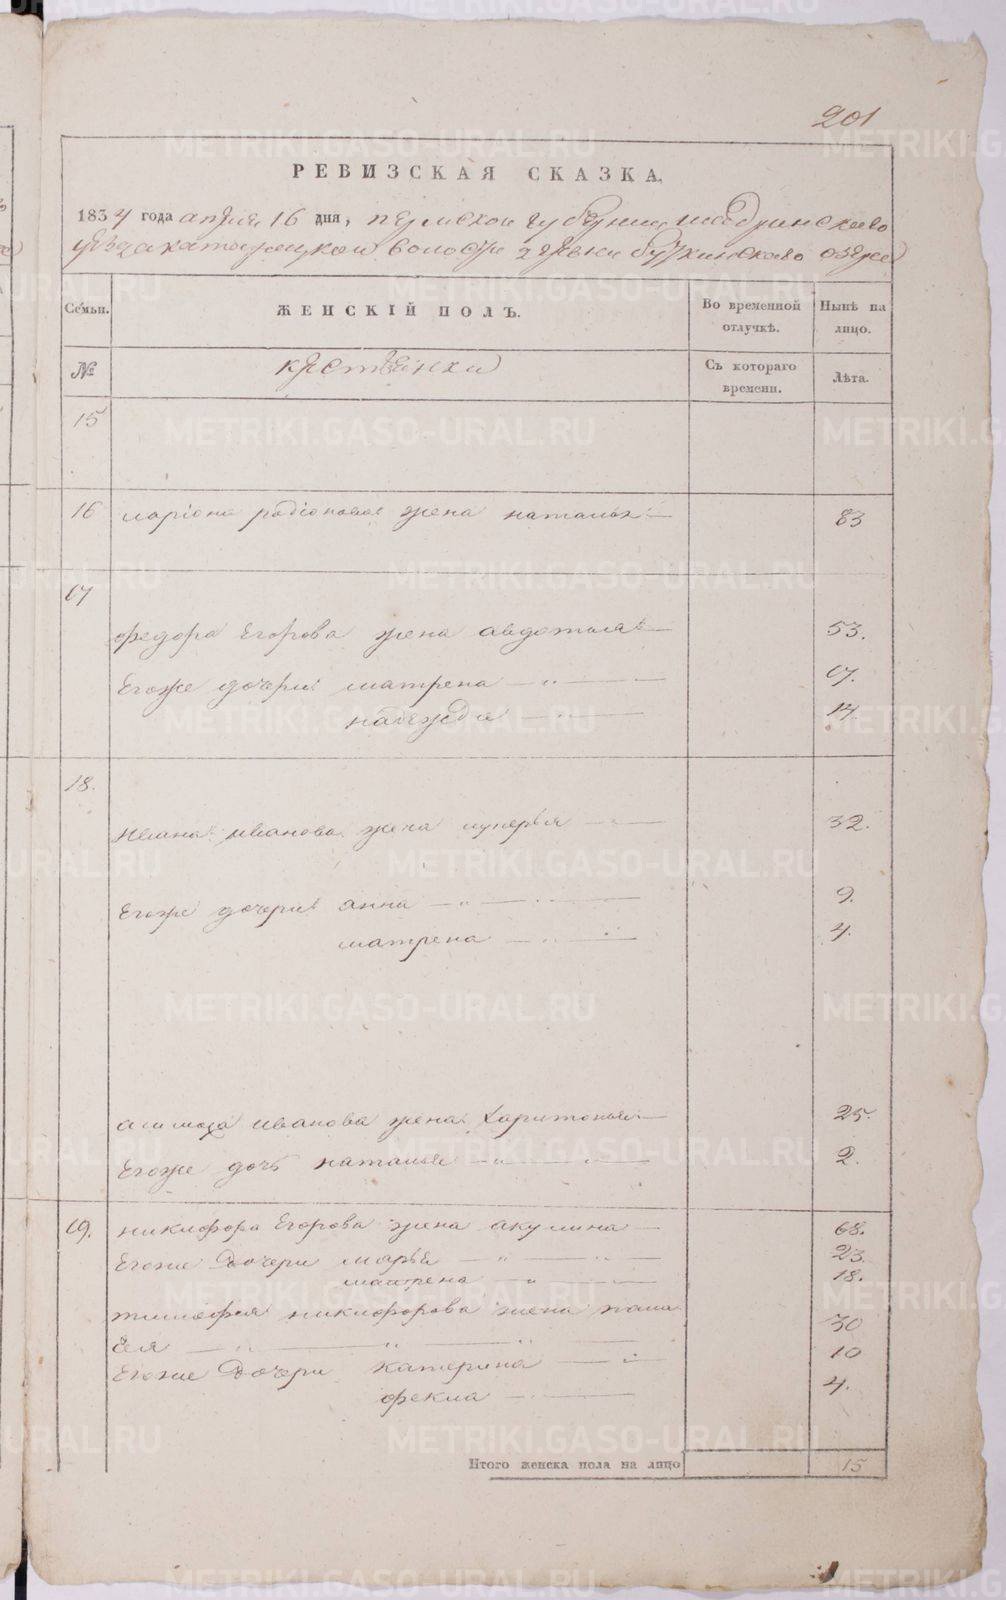 201
РЕВИЗСКАЯ СКАЗКА.
1834 года апреля 16 дня, пермской губернии шадринсково
уезда катайской волости деревни буткинсково озера
Семьи. ЖЕНСКІЙ ПОЛЪ. Во временной отлучкѣ. Нынѣ на лицо.
№ крестьянки Съ котораго времени. Лѣта.
15
16 лариона родіонова жена наталья 83
17
федора Егорова жена авдотья 53.
Егоже дочери матрена 17.
надежда 14.
18.
иванова жена лукерья 32.
Егоже дочери анна 9.
матрена 4.
иванова жена харитонья 25.
Егоже дочь наталья 2.
19. никифора Егорова жена акулина 68.
Егоже дочери марья 23.
матрена 18.
тимофея никифорова жена 30
Егоже дочери катерина 10
фекла 4.
Итого женска пола на лицо 15
METRIKI.GASO-URAL.RU